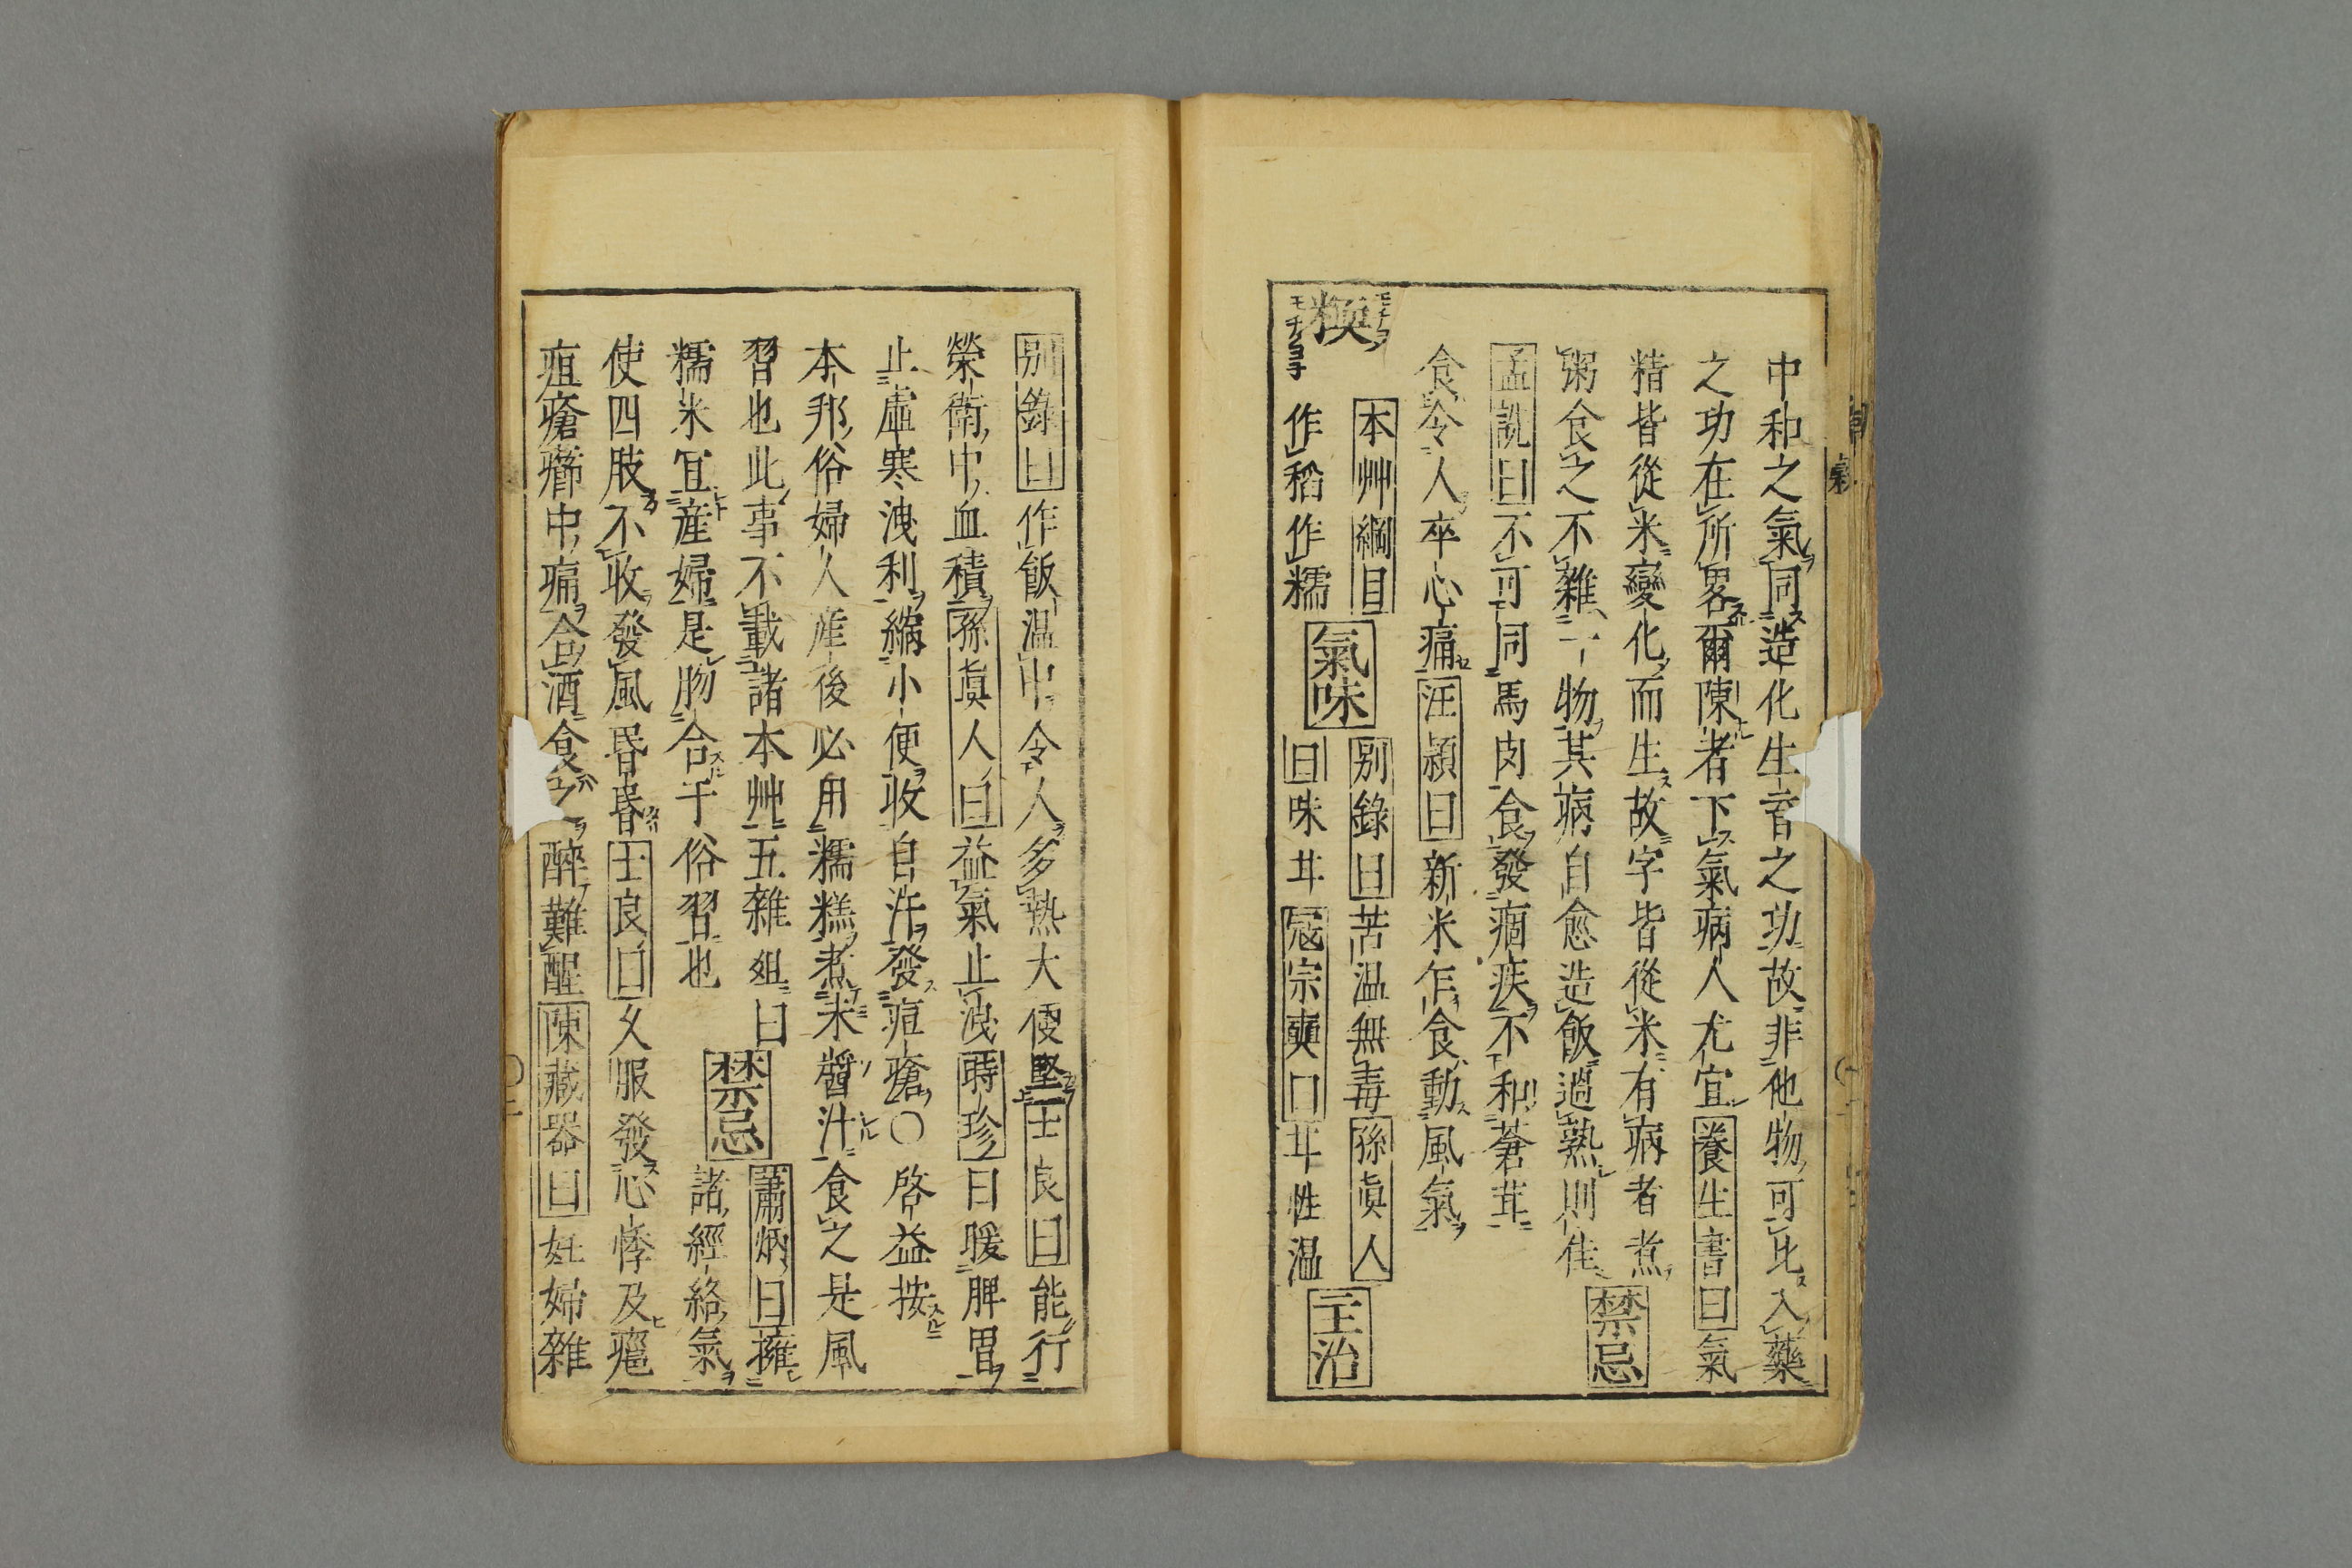 中和之氣同造化生育之功故非他物可比入藥
之功在所畧爾陳者下氣病人尤宜養生書曰氣
精皆從米變化而生故字皆從米有病者煮
粥食之不雜一物其病自愈造飯過熟則佳禁忌
孟詵曰不可同馬肉食發痼疾不和蒼茸
食令人卒心痛汪頴曰新米乍食動風氣
糯
モチノヨネ
本艸綱目
作稻作糯
氣味
别錄曰苦温無毒孫眞人
曰味甘冦宗奭曰甘性温
主治
别錄曰作飯温中令人多熱大便堅士良曰能行
榮衛中血積孫眞人曰益氣止洩時珍曰暖脾胃
止虛寒洩利縮小便收自汗發痘瘡○啓益按
本邦俗婦人産後必用糯糕煮米醬汁食之是風
習也此事不載諸本艸五雜爼曰
糯米宜産婦是物合于俗習也
禁忌
蕭炳曰擁
諸經絡氣
使四肢不收發風昏昏士良曰久服發心悸及癰
疽瘡癤中痛合酒食醉難醒陳藏器曰妊婦雜